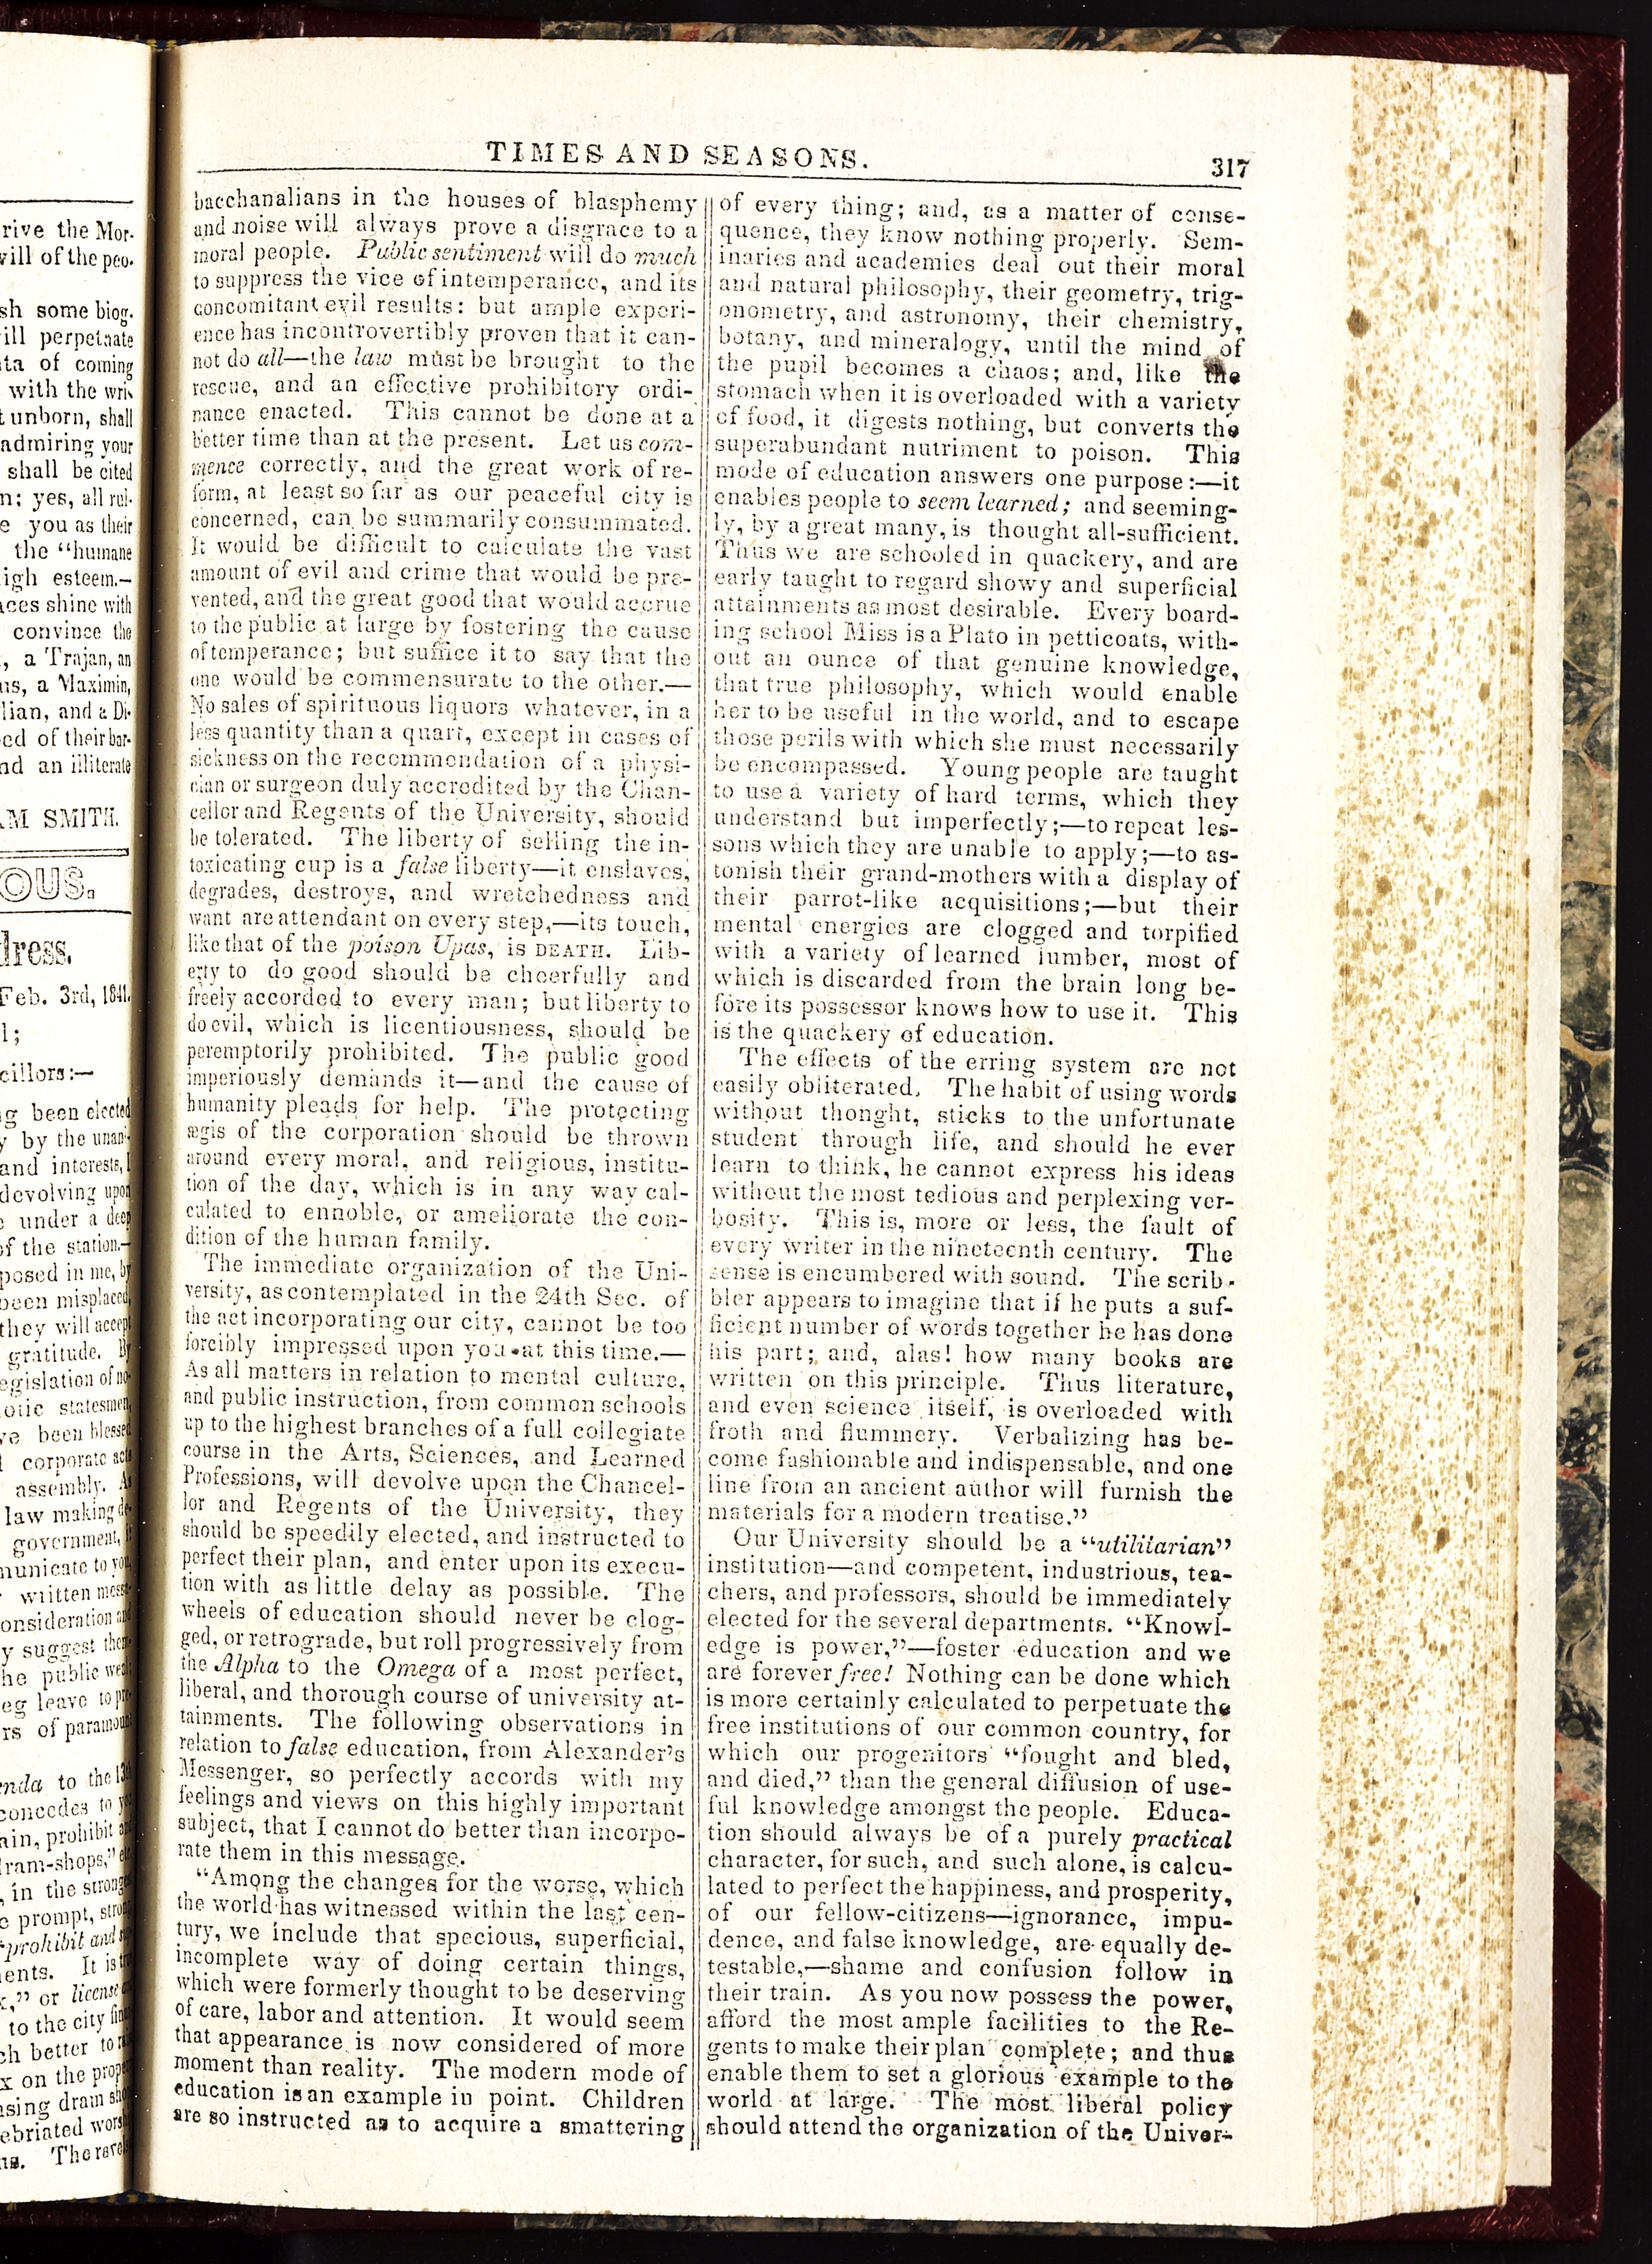 rive the Mor-
will of the peo-
sh some biog-
ill perpetuate
ta of coming
with the wri-
t unborn, shall
admiring your
shall be cited
n; yes, all rul-
e you as their
the "humane
igh esteem.—
aces shine with
convince the
, a Trajan, an
us, a Maximin,
lian, and a Di-
ed of their bar-
nd an illiterate
AM SMITH.
OUS.
dress.
Feb. 3rd, 1841.
l;
cillors:—
g been elected
y by the unani-
and interests, I
devolving upon
under a deep
of the station.—
posed in me, by
been misplaced,
they will accept
gratitude. By
egislation of no-
otic statesmen,
ve been blessed
corporate acts
assembly. As
law making de-
government, is
municate to you,
written mess-
onsideration and
y suggest them-
he public weal
eg leave to pre-
rs of paramount
enda to the 13th
concedes to you
ain, prohibit and
ram-shops," etc.
, in the strongest
e prompt, strong
"prohibit and sup-
ents. It is true
x," or license
to the city
ch better to
x on the
asing dram sho
ebriated
ns. The
TIMES AND SEASONS. 317
bacchanalians in the houses of blasphemy
and noise will always prove a disgrace to a
moral people. Public sentiment will do much
to suppress the vice of intemperance, and its
concomitant evil results: but ample experi-
ence has incontrovertibly proven that it can-
not do all—the law must be brought to the
rescue, and an effective prohibitory ordi-
nance enacted. This cannot be done at a
better time than at the present. Let us com-
mence correctly, and the great work of re-
form, at least so far as our peaceful city is
concerned, can be summarily consummated.
It would be difficult to calculate the vast
amount of evil and crime that would be pre-
vented, and the great good that would accrue
to the public at large by fostering the cause
of temperance; but suffice it to say that the
one would be commensurate to the other.—
No sales of spirituous liquors whatever, in a
less quantity than a quart, except in cases of
sickness on the recommendation of a physi-
cian or surgeon duly accredited by the Chan-
cellor and Regents of the University, should
be tolerated. The liberty of selling the in-
toxicating cup is a false liberty—it enslaves,
degrades, destroys, and wretchedness and
want are attendant on every step,—its touch,
like that of the poison Upas, is DEATH. Lib-
erty to do good should be cheerfully and
freely accorded to every man; but liberty to
do evil, which is licentiousness, should be
peremptorily prohibited. The public good
imperiously demands it—and the cause of
humanity pleads for help. The protecting
ægis of the corporation should be thrown
around every moral, and religious, institu-
tion of the day, which is in any way cal-
culated to ennoble, or ameliorate the con-
dition of the human family.
The immediate organization of the Uni-
versity, as contemplated in the 24th Sec. of
the act incorporating our city, cannot be too
forcibly impressed upon you at this time.—
As all matters in relation to mental culture,
and public instruction, from common schools
up to the highest branches of a full collegiate
course in the Arts, Sciences, and Learned
Professions, will devolve upon the Chancel-
lor and Regents of the University, they
should be speedily elected, and instructed to
perfect their plan, and enter upon its execu-
tion with as little delay as possible. The
wheels of education should never be clog-
ged, or retrograde, but roll progressively from
the Alpha to the Omega of a most perfect,
liberal, and thorough course of university at-
tainments. The following observations in
relation to false education, from Alexander's
Messenger, so perfectly accords with my
feelings and views on this highly important
subject, that I cannot do better than incorpo-
rate them in this message.
"Among the changes for the worse, which
the world has witnessed within the last cen-
tury, we include that specious, superficial,
incomplete way of doing certain things,
which were formerly thought to be deserving
of care, labor and attention. It would seem
that appearance is now considered of more
moment than reality. The modern mode of
education is an example in point. Children
are so instructed as to acquire a smattering
of every thing; and, as a matter of conse-
quence, they know nothing properly. Sem-
inaries and academies deal out their moral
and natural philosophy, their geometry, trig-
onometry, and astronomy, their chemistry,
botany, and mineralogy, until the mind of
the pupil becomes a chaos; and, like the
stomach when it is overloaded with a variety
of food, it digests nothing, but converts the
superabundant nutriment to poison. This
mode of education answers one purpose:—it
enables people to seem learned; and seeming-
ly, by a great many, is thought all-sufficient.
Thus we are schooled in quackery, and are
early taught to regard showy and superficial
attainments as most desirable. Every board-
ing school Miss is a Plato in petticoats, with-
out an ounce of that genuine knowledge,
that true philosophy, which would enable
her to be useful in the world, and to escape
those perils with which she must necessarily
be encompassed. Young people are taught
to use a variety of hard terms, which they
understand but imperfectly;—to repeat les-
sons which they are unable to apply;—to as-
tonish their grand-mothers with a display of
their parrot-like acquisitions;—but their
mental energies are clogged and torpified
with a variety of learned lumber, most of
which is discarded from the brain long be-
fore its possessor knows how to use it. This
is the quackery of education.
The effects of the erring system are not
easily obliterated. The habit of using words
without thonght, sticks to the unfortunate
student through life, and should he ever
learn to think, he cannot express his ideas
without the most tedious and perplexing ver-
bosity. This is, more or less, the fault of
every writer in the nineteenth century. The
sense is encumbered with sound. The scrib-
bler appears to imagine that if he puts a suf-
ficient number of words together he has done
his part; and, alas! how many books are
written on this principle. Thus literature,
and even science itself, is overloaded with
froth and flummery. Verbalizing has be-
come fashionable and indispensable, and one
line from an ancient author will furnish the
materials for a modern treatise."
Our University should be a "utilitarian"
institution—and competent, industrious, tea-
chers, and professors, should be immediately
elected for the several departments. "Knowl-
edge is power,"—foster education and we
are forever free! Nothing can be done which
is more certainly calculated to perpetuate the
free institutions of our common country, for
which our progenitors "fought and bled,
and died," than the general diffusion of use-
ful knowledge amongst the people. Educa-
tion should always be of a purely practical
character, for such, and such alone, is calcu-
lated to perfect the happiness, and prosperity,
of our fellow-citizens—ignorance, impu-
dence, and false knowledge, are equally de-
testable,—shame and confusion follow in
their train. As you now possess the power,
afford the most ample facilities to the Re-
gents to make their plan complete; and thus
enable them to set a glorious example to the
world at large. The most liberal policy
should attend the organization of the Univer-